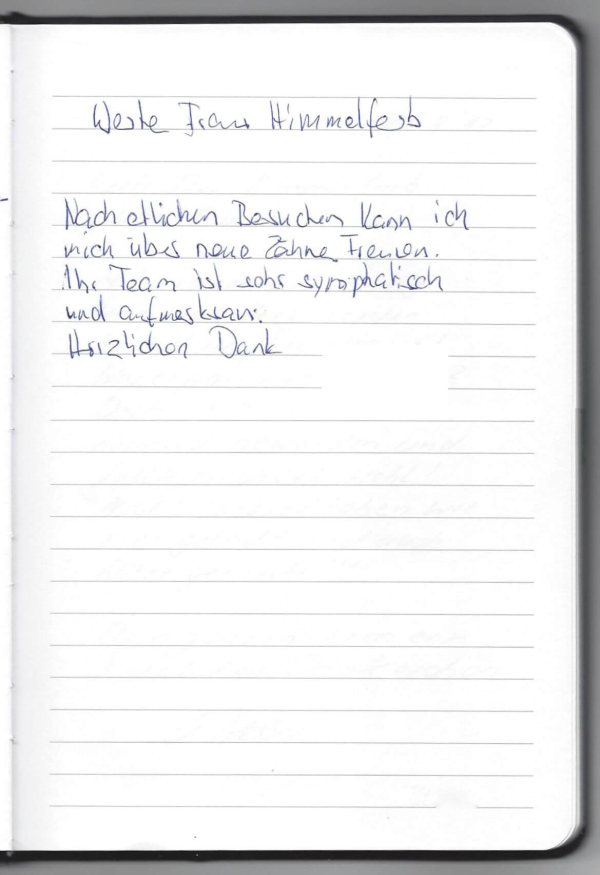 Werte Frau Himmelferb
Nach etlichen Besuchen kann ich
mich über neue Zähne freuen.
Ihr Team ist sehr symphatisch
und aufmerksam.
Herzlichen Dank